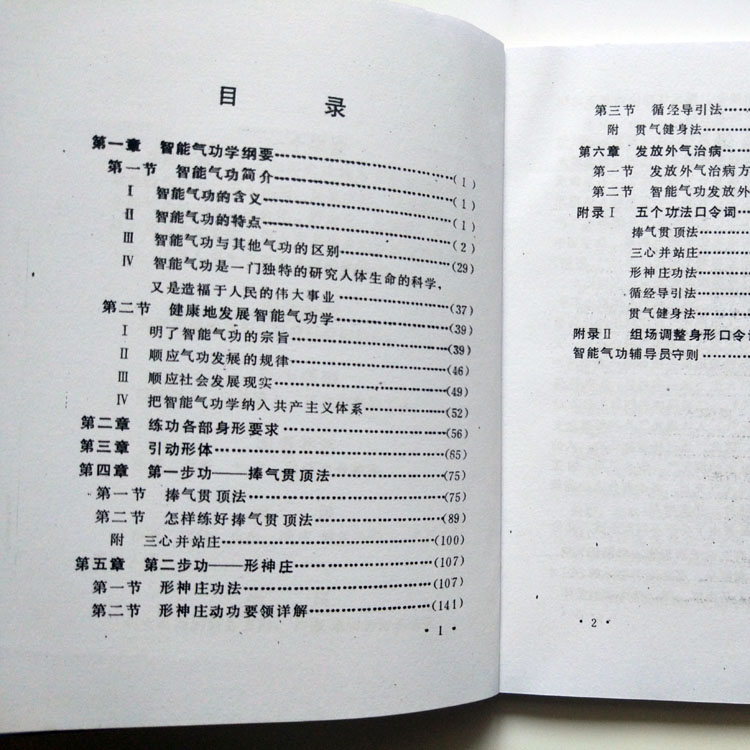 目 录
第一章 智能气功学纲要……………………………
第一节 智能气功简介……………………………(1)
Ⅰ 智能气功的含义……………………………(1)
Ⅱ 智能气功的特点……………………………(1)
Ⅲ 智能气功与其他气功的区别………………(2)
Ⅳ 智能气功是一门独特的研究人体生命的科学,(29)
又是造福于人民的伟大事业………………(37)
第二节 健康地发展智能气功学………………(39)
Ⅰ 明了智能气功的宗旨………………………(39)
Ⅱ 顺应气功发展的规律………………………(46)
Ⅲ 顺应社会发展现实…………………………(49)
Ⅳ 把智能气功学纳入共产主义体系…………(52)
第二章 练功各部身形要求………………………(56)
第三章 引动形体…………………………………(65)
第四章 第一步功——捧气贯顶法………………(75)
第一节 捧气贯顶法………………………………(75)
第二节 怎样练好捧气贯顶法……………………(89)
附 三心并站庄…………………………………(100)
第五章 第二步功——形神庄……………………(107)
第一节 形神庄功法………………………………(107)
第二节 形神庄动功要领详解……………………(141)
· 1 ·
第三节 循经导引法…
附 贯气健身法……
第六章 发放外气治病…
第一节 发放外气治病方
第二节 智能气功发放外
附录Ⅰ 五个功法口令词
捧气贯顶法………
三心并站庄………
形神庄功法………
循经导引法………
贯气健身法………
附录Ⅱ 组场调整身形口令词
智能气功辅导员守则………
· 2 ·